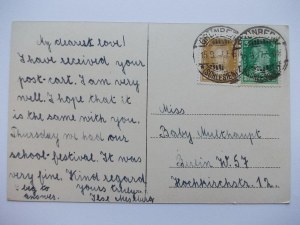 My dearest love!
I have received your
post-cart. I am very
well. I hope that it
is the same with you.
Thursday we had our
school-festival. It was
very fine. Kind regard
Yours truly
answer. Ilse
Miss
Baby Multhaupt
Berlin W. 57
Hochkirchstr. 12.